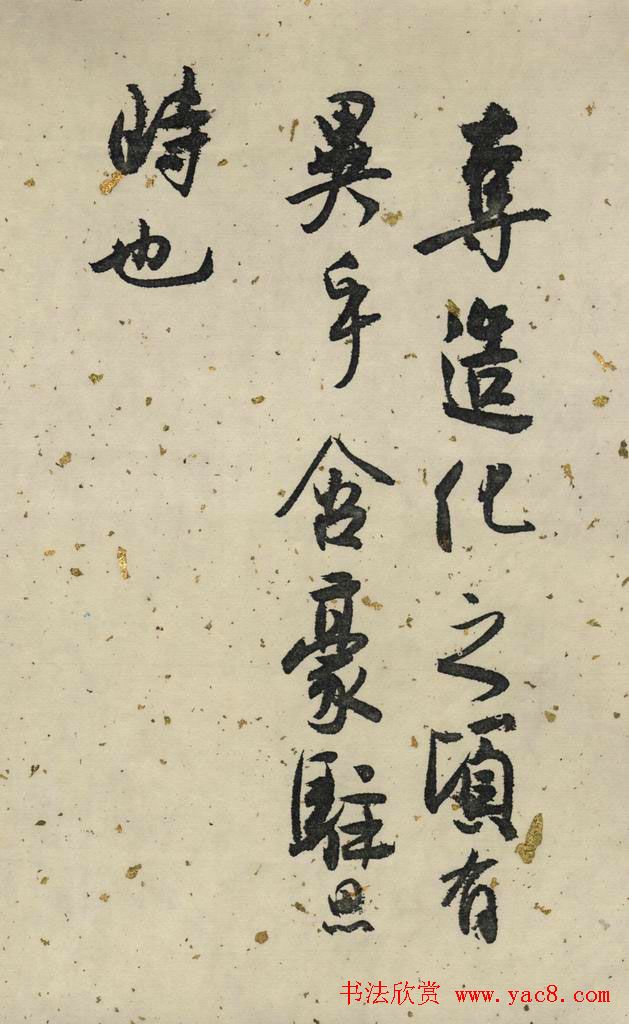 奪造化之頃有
異乎含豪駐思
時也
书法欣赏 www.yac8.com